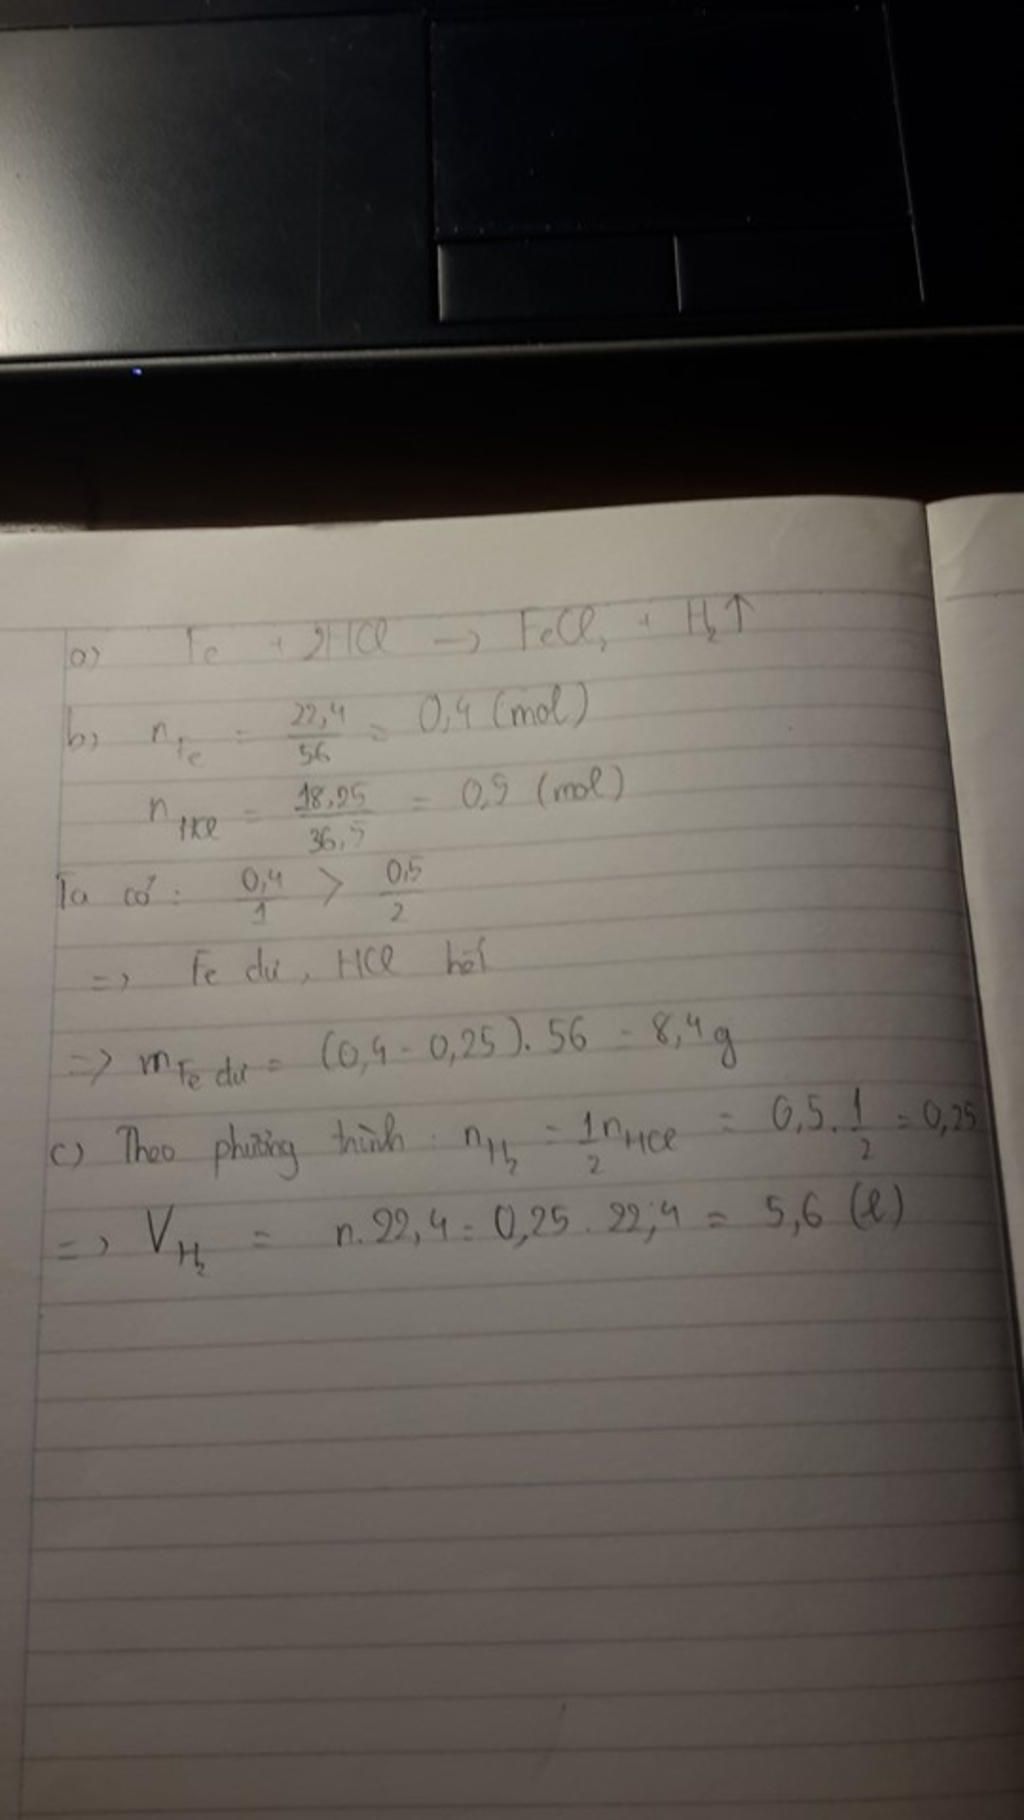 a) Fe + 2HCl → FeCl₂ + H₂↑
b) n_Fe = 22,4/56 = 0,4 (mol)
n_HCl = 18,25/36,5 = 0,5 (mol)
Ta có: 0,4/1 > 0,5/2
=> Fe dư, HCl hết
=> m_Fe dư = (0,4 - 0,25). 56 = 8,4g
c) Theo phương trình: n_H₂ = 1/2 n_HCl = 0,5. 1/2 = 0,25
=> V_H₂ = n. 22,4 = 0,25 . 22,4 = 5,6 (l)